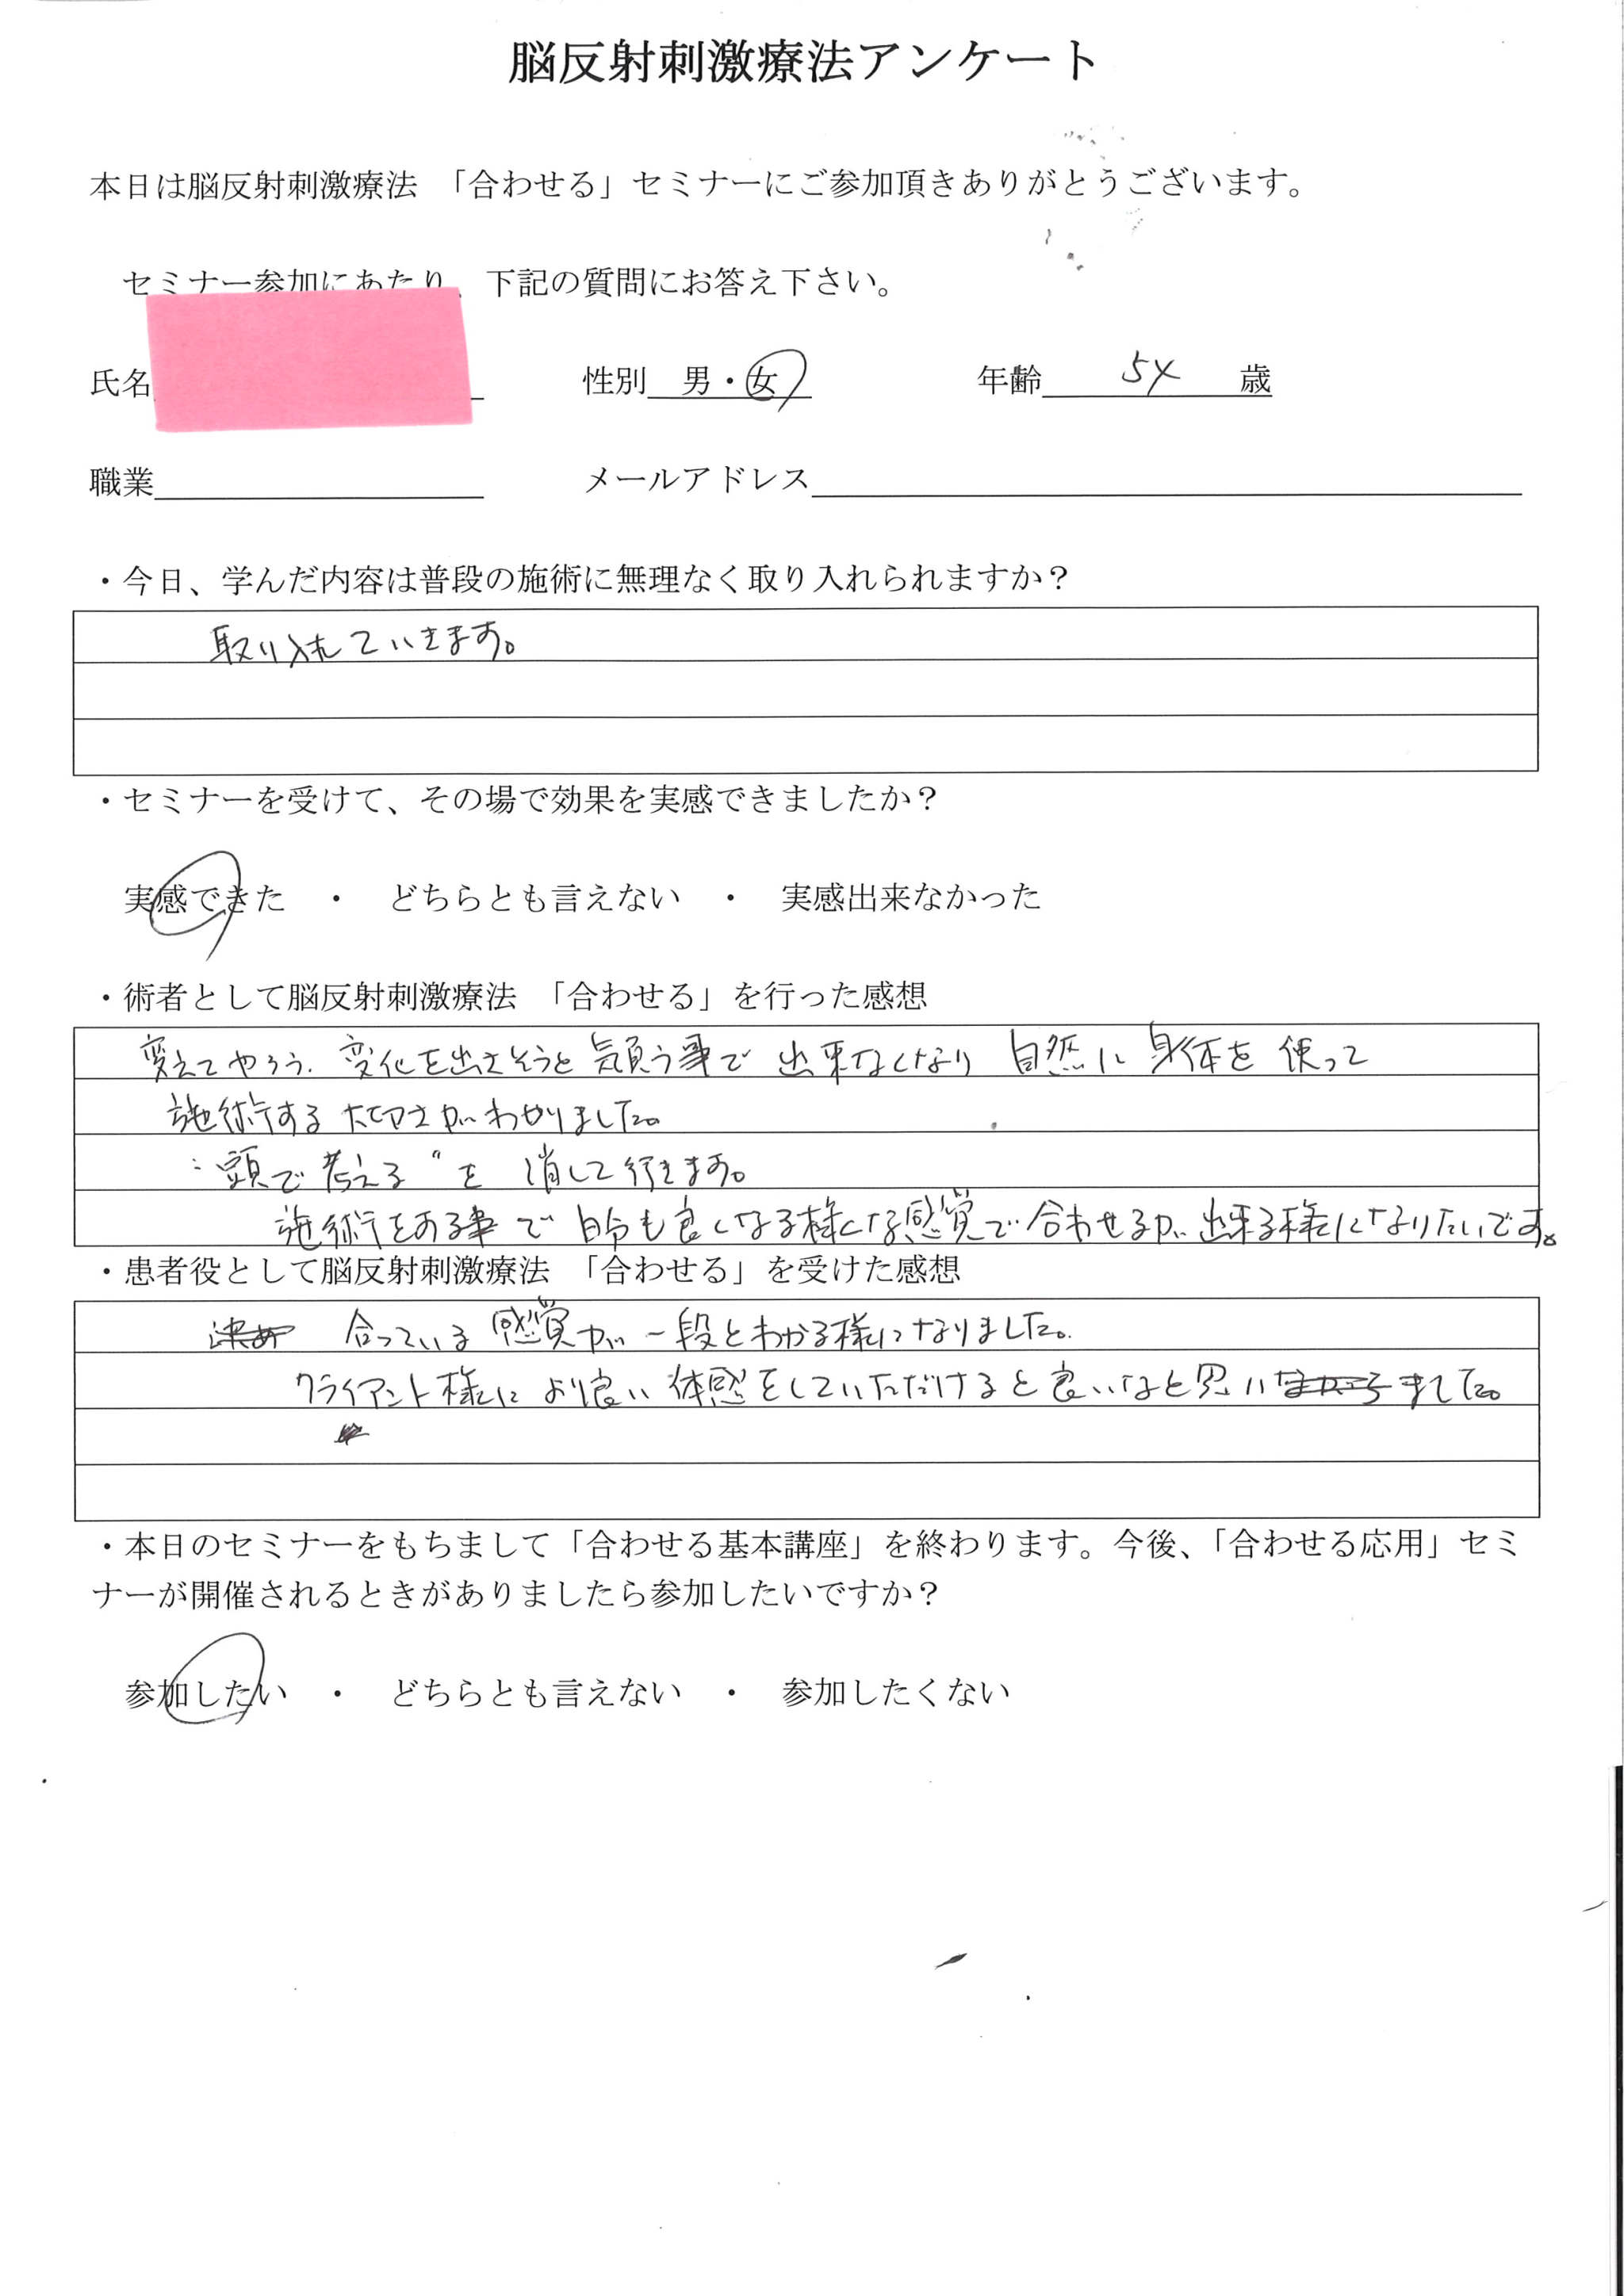 脳反射刺激療法アンケート
本日は脳反射刺激療法 「合わせる」セミナーにご参加頂きありがとうございます。
セミナー参加にあたり、下記の質問にお答え下さい。
氏名 性別 男・女 年齢 54 歳
職業 メールアドレス
・今日、学んだ内容は普段の施術に無理なく取り入れられますか？
取り入れていきます。
・セミナーを受けて、その場で効果を実感できましたか？
実感できた ・ どちらとも言えない ・ 実感出来なかった
・術者として脳反射刺激療法 「合わせる」を行った感想
変えてやろう、変化を出さそうと気負う事で出来なくなり 自然に身体を使って
施術する大切さがわかりました。
"頭で考える"を消して行きます。
施術をする事で自分も良くなる様な感覚で合わせるが出来る様になりたいです。
・患者役として脳反射刺激療法 「合わせる」を受けた感想
合っている感覚が一段とわかる様になりました。
クライアント様により良い体感をしていただけると良いなと思いました。
・本日のセミナーをもちまして「合わせる基本講座」を終わります。今後、「合わせる応用」セミ
ナーが開催されるときがありましたら参加したいですか？
参加したい ・ どちらとも言えない ・ 参加したくない